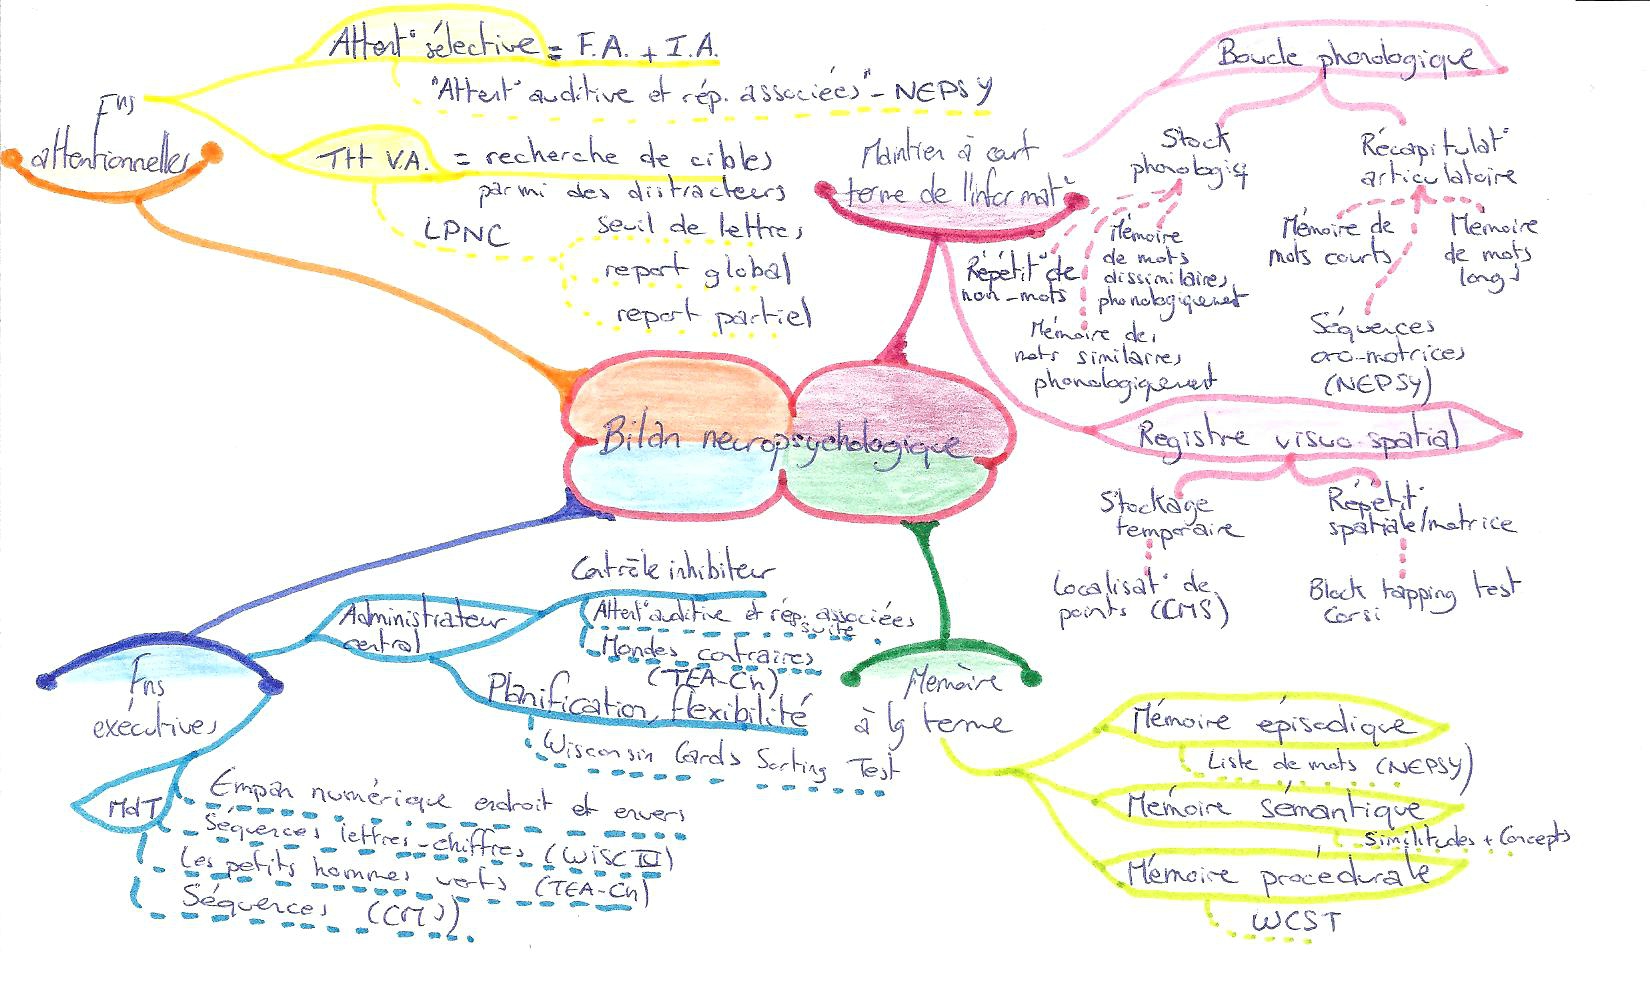 Attent° sélective = F.A. + I.A.
"Attent° auditive et rép. associées" - NEPSY
Fns
attentionnelles
TTT V.A. = recherche de cibles
parmi des distracteurs
LPNC
seuil de lettres
report global
report partiel
Maintien à court
terme de l'informat°
Boucle phonologique
Stock
phonologiq
Répétit° de
non-mots
Mémoire
de mots
dissimilaires
phonologiquement
Mémoire de
mots similaires
phonologiquement
Récapitulat°
articulatoire
Mémoire de
mots courts
Mémoire
de mots
longs
Séquences
oro-motrices
(NEPSY)
Registre visuo-spatial
Stockage
temporaire
Localisat° de
points (CMS)
Répétit°
spatiale/motrice
Block tapping test
Corsi
Bilan neuropsychologique
Fns
exécutives
Administrateur
central
Contrôle inhibiteur
Attent° auditive et rép. associées
suite
Mondes contraires
(TEA-Ch)
Planification, flexibilité
Wisconsin Cards Sorting Test
MdT
Empan numérique endroit et envers
Séquences lettres-chiffres (WISC IV)
Les petits hommes verts (TEA-Ch)
Séquences (CMS)
Mémoire
à lg terme
Mémoire épisodique
Liste de mots (NEPSY)
Mémoire sémantique
Similitudes + Concepts
Mémoire procédurale
WCST